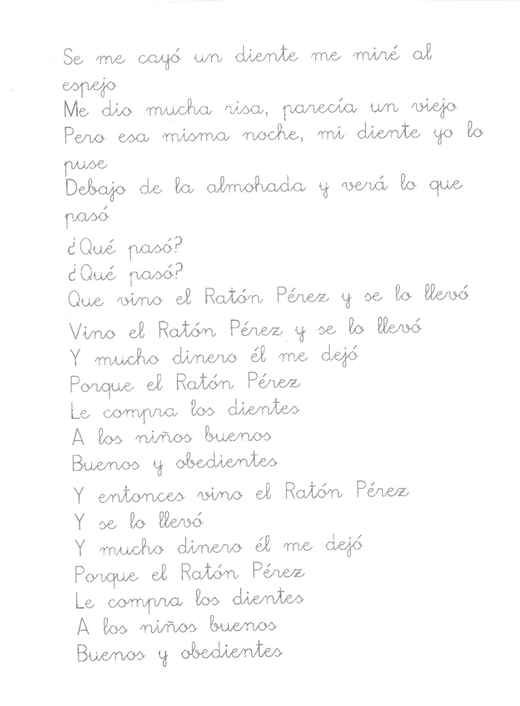 Se me cayó un diente me miré al
espejo
Me dio mucha risa, parecía un viejo
Pero esa misma noche, mi diente yo lo
puse
Debajo de la almohada y verá lo que
pasó
¿Qué pasó?
¿Qué pasó?
Que vino el Ratón Pérez y se lo llevó
Vino el Ratón Pérez y se lo llevó
Y mucho dinero él me dejó
Porque el Ratón Pérez
Le compra los dientes
A los niños buenos
Buenos y obedientes
Y entonces vino el Ratón Pérez
Y se lo llevó
Y mucho dinero él me dejó
Porque el Ratón Pérez
Le compra los dientes
A los niños buenos
Buenos y obedientes